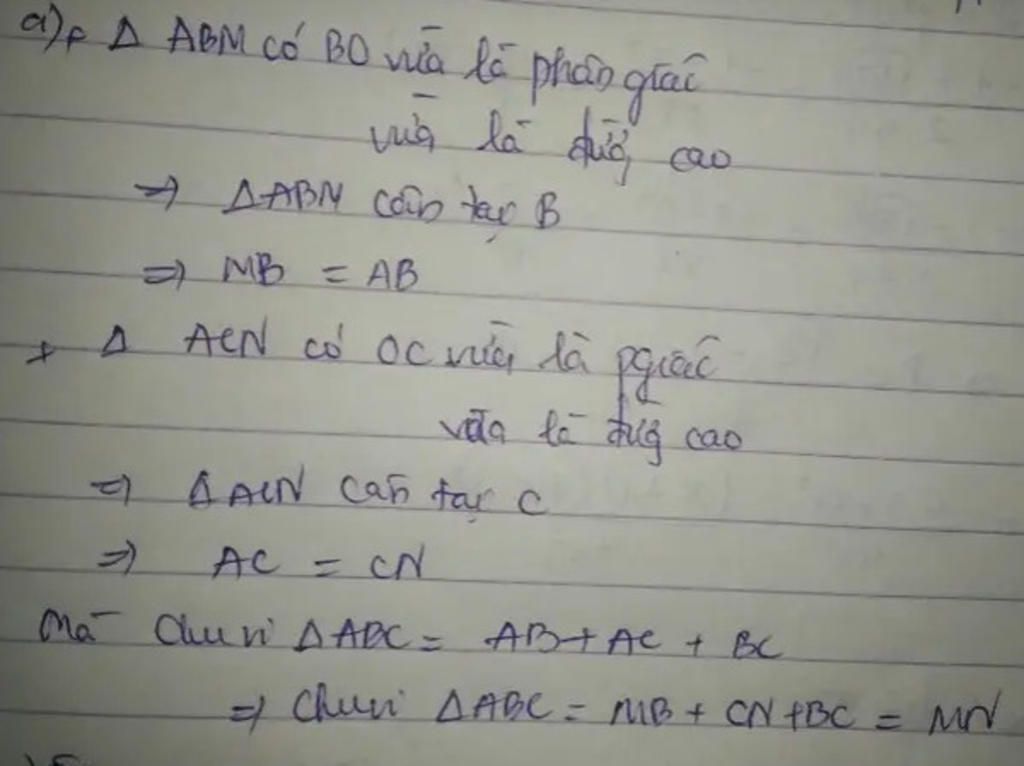 a) + Δ ABM có BO vừa là phân giác
vừa là đường cao
=> ΔABM cân tại B
=> MB = AB
+ Δ ACN có OC vừa là pgiác
vừa là đường cao
=> ΔACN cân tại C
=> AC = CN
Mà Chu vi ΔABC = AB + AC + BC
=> Chu vi ΔABC = MB + CN + BC = MN